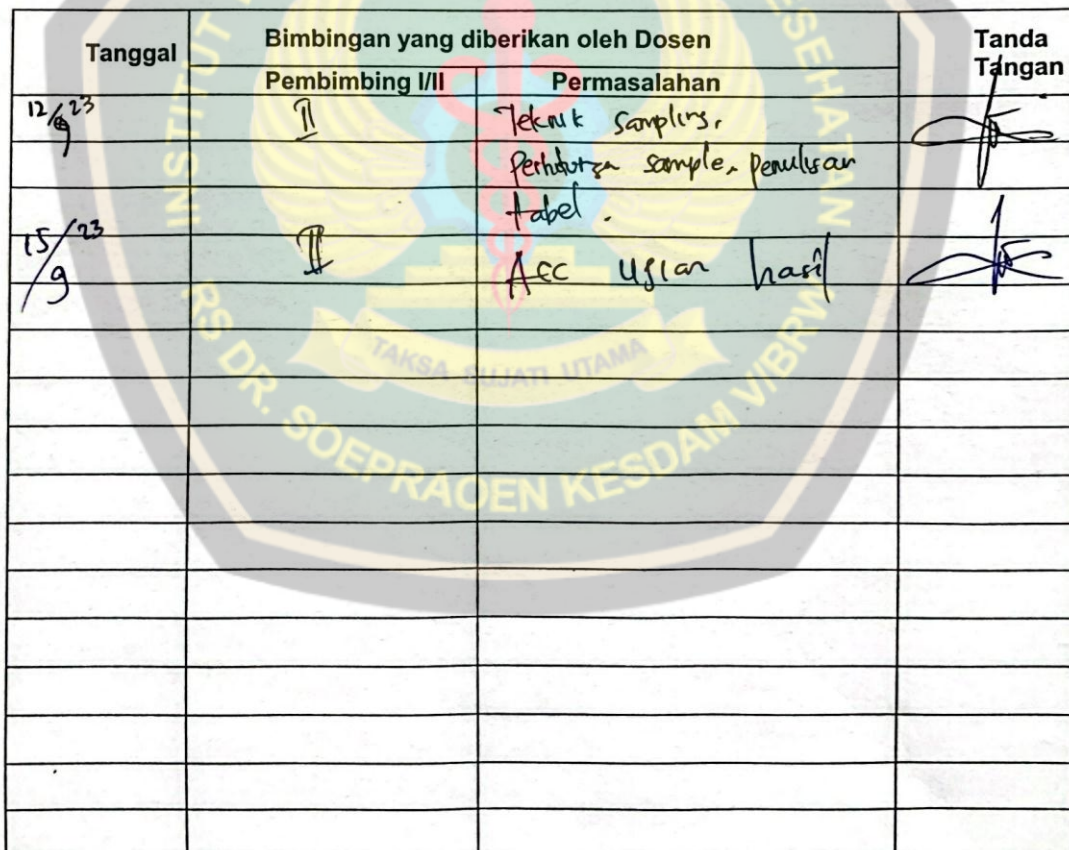 Tanggal
Bimbingan yang diberikan oleh Dosen
Tanda Tangan
Pembimbing I/II
Permasalahan
12/9 23
II
Teknik sampling,
Perhitungan sample, penulisan
tabel.
15/9 23
II
Acc ujian hasil
INSTITUT
KESEHATAN
RS DR. SOEPRAOEN KESDAM V/BRW
TAKSA SUJATI UTAMA